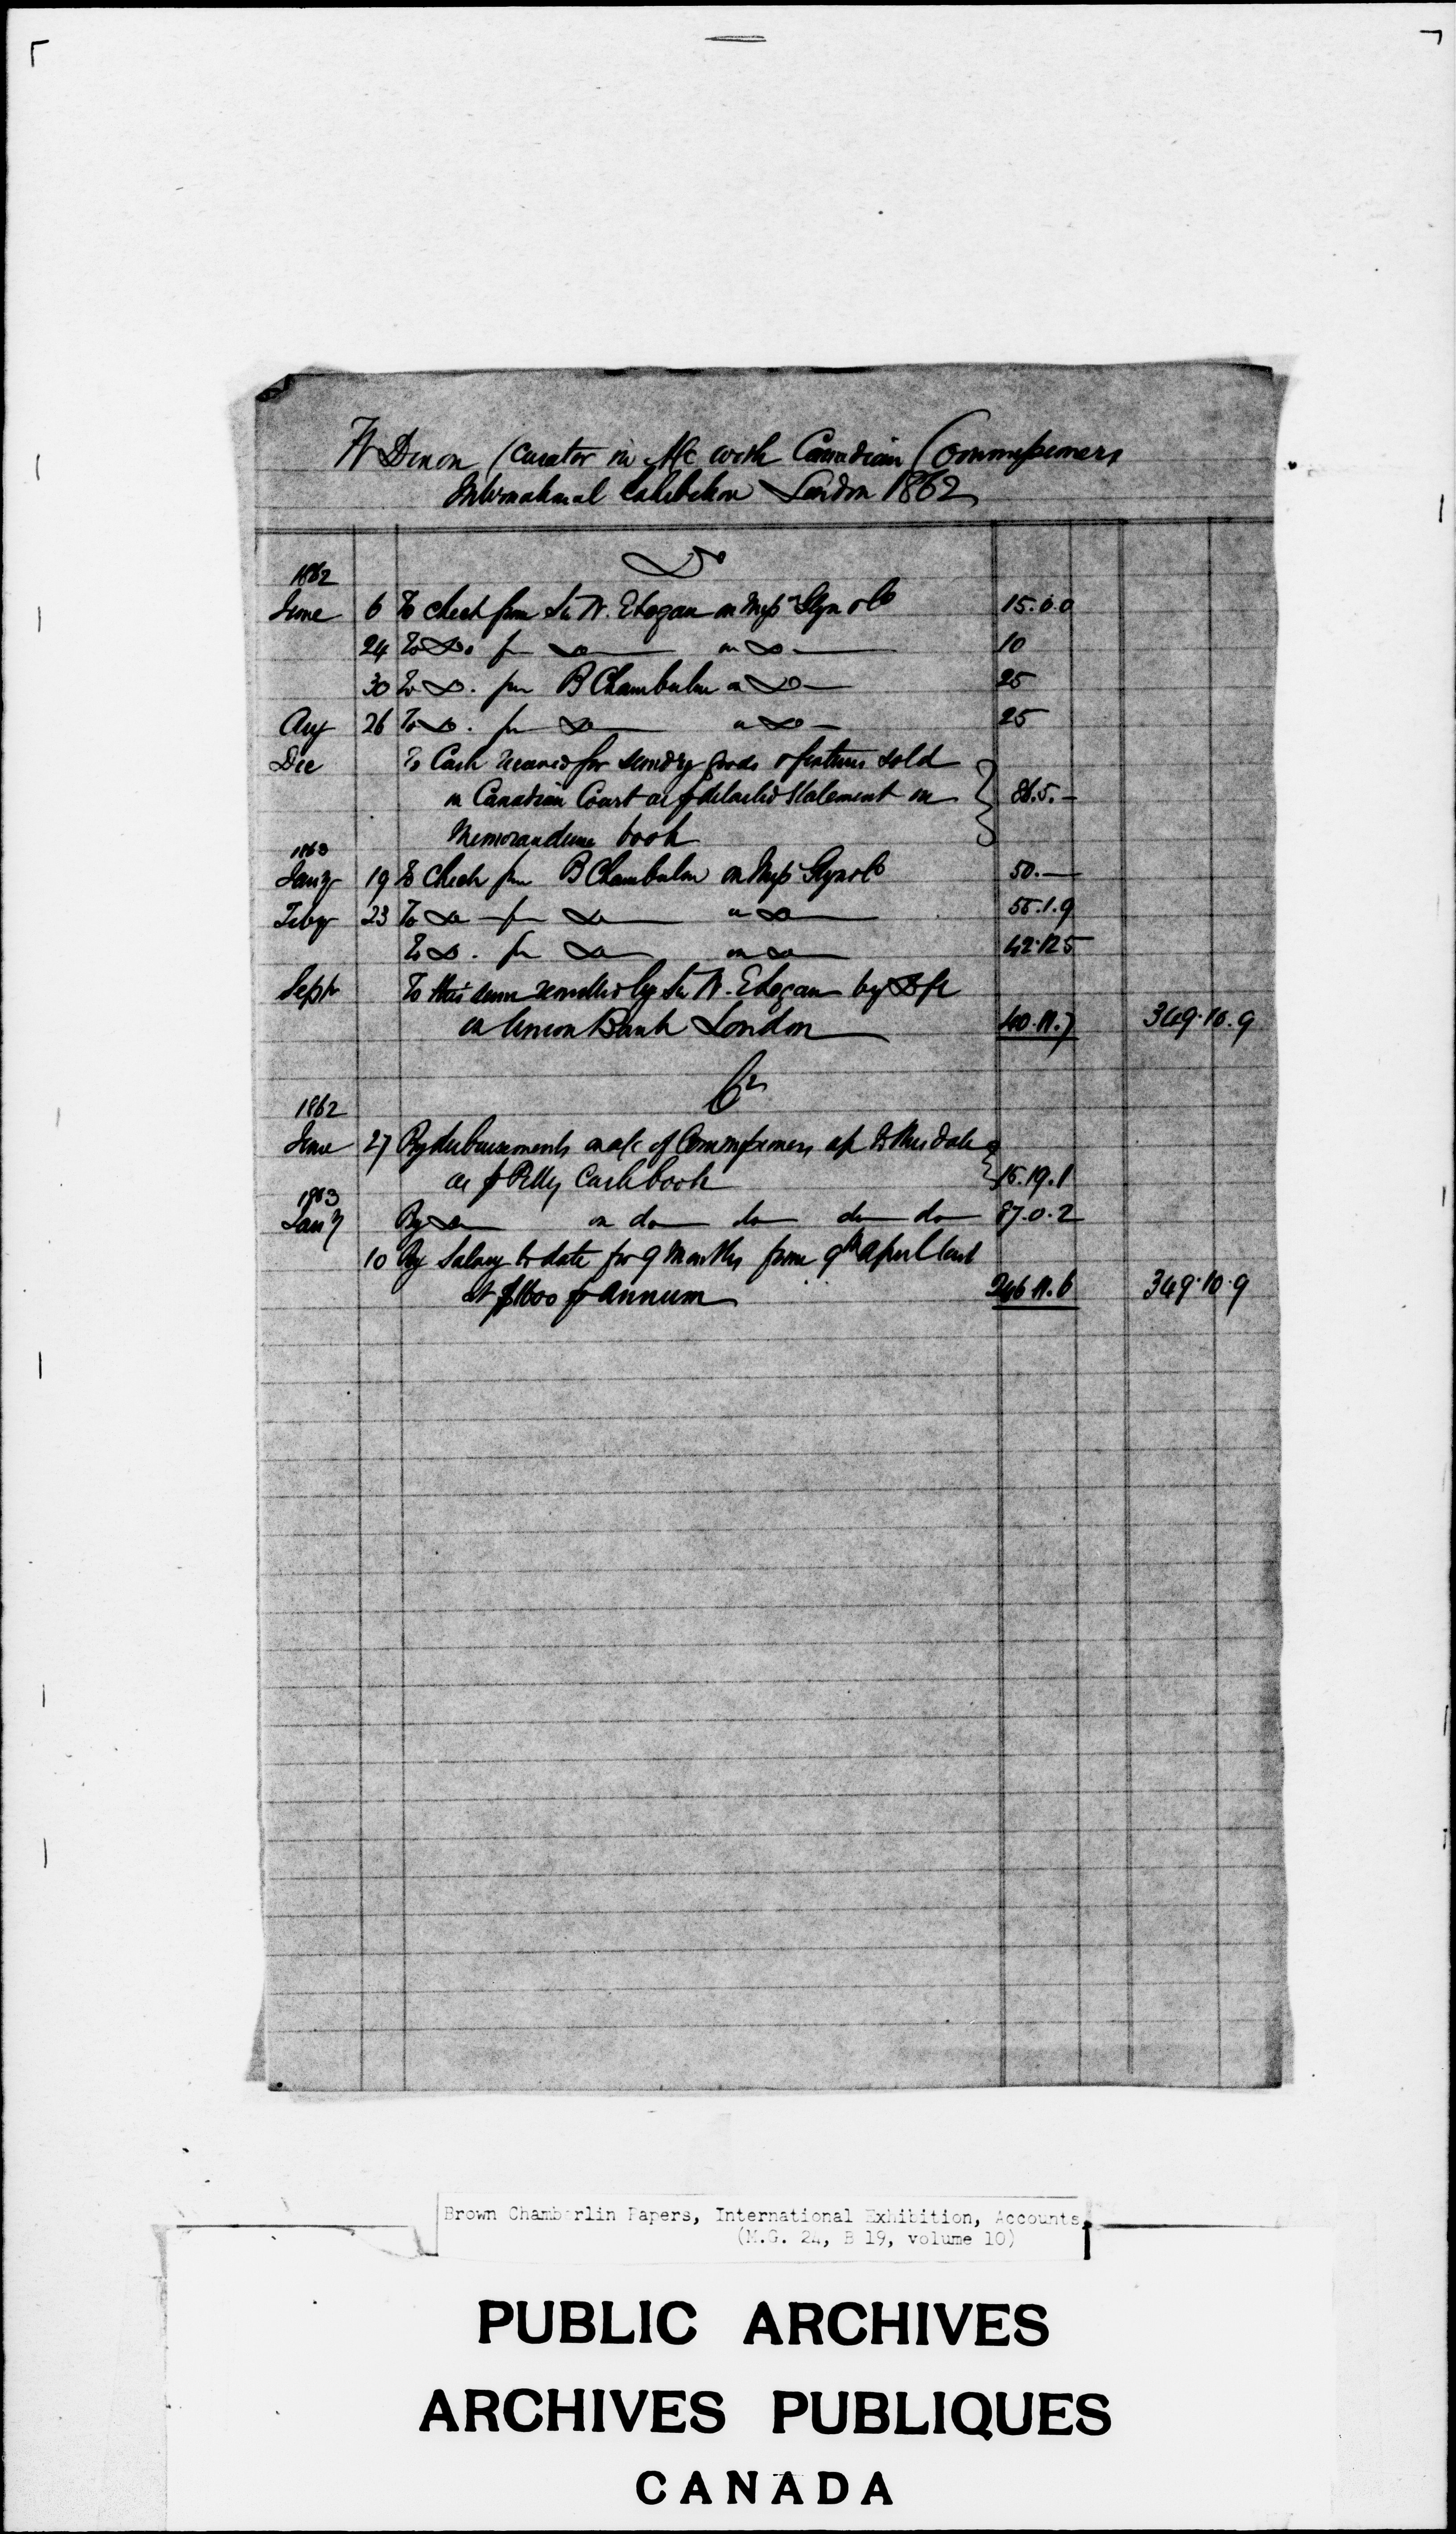 W Dixon Curator in A/c with Canadian Commissioners
International Exhibition London 1862
Dr
1862
June 6 To check from Sir W. E Logan on Messrs Glyn & Co 15.0.0
24 To Do. fm Do on Do 10
30 To Do. fm B Chamberlin on Do 25
Aug 26 To Do. fm Do on Do 25
Dec To Cash received for sundry goods & fixtures sold
in Canadian Court as p detailed Statement in 86.5.-
Memorandum book
1863
Jany 19 To Check fm B Chamberlin on Messrs Glyn & Co 50.—
Feby 23 To Do fm Do on Do 55.1.9
To Do. fm Do on Do 42.12.5
Sept To this sum remitted by Sir W. E Logan by Dft
on Union Bank London 40.11.7 349.10.9
Cr
1862
June 27 By disbursements on a/c of Commissioners up to this date
as p Petty Cash book 15.19.1
1863
Jany By Do on do do do do 87.0.2
10 By Salary to date for 9 Months from 9th April last
at $1600 p annum 246.11.6 349.10.9
Brown Chamberlin Papers, International Exhibition, Accounts,
(M.G. 24, B 19, volume 10)
PUBLIC ARCHIVES
ARCHIVES PUBLIQUES
CANADA